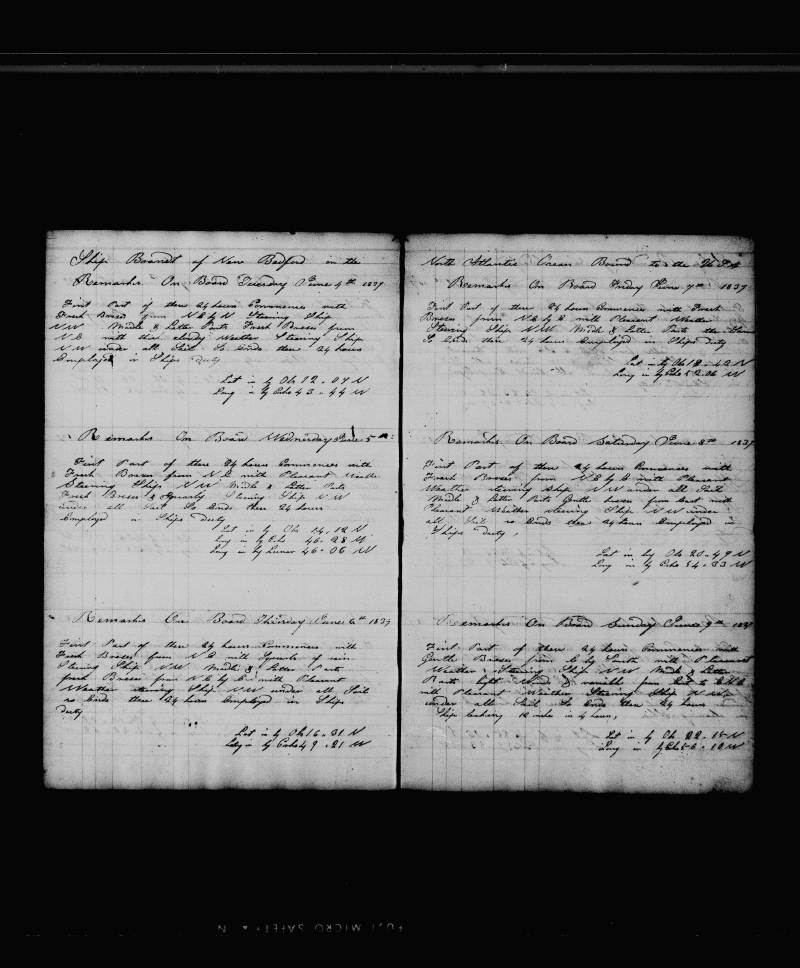 Ship Brandt of New Bedford in the
Remarks On Board Tuesday June 4th 1839
First Part of these 24 hours Commences with
Fresh Breses from N E by N Steering Ship
N W Midle & Latter Parts Fresh Breses from
N E with thick cloudy Weather Steering Ship
N W under all Sail So Ends these 24 hours
Employed in Ships duty
Lat in by Ob 12.04 N
Long in by Cho 43.44 W
Remarks On Board Wednesday June 5th
First Part of these 24 hours Commences with
Fresh Breses from N E with Pleasant Weather
Steering Ship N W Midle & Latter Parts
Fresh Breses & Squarly Steering Ship N W
under all Sail So Ends these 24 hours
Employed in Ships Duty
Lat in by Ob 14.12 N
Long in by Cho 46.28 W
Long in by Lunar 46.06 W
Remarks On Board Thursday June 6th 1839
First Part of these 24 hours Commences with
Fresh Breses from N E with Squals of rain
Steering Ship N W Midle & Latter Parts
fresh Breses from N E by E with Pleasant
Weather steering Ship N W under all Sail
so Ends these 24 hours Employed in Ships
duty
Lat in by Ob 16.31 N
Long in by Cho 49.21 W
North Atlantic Ocean Bound to the U S A
Remarks On Board Friday June 7th 1839
First Part of these 24 hours Commences with Fresh
Breses from N E by E with Pleasant Weather
Steering Ship N W Midle & Latter Parts the Same
So Ends these 24 hours Employed in Ships duty
Lat in by Ob 18.42 N
Long in by Cho 52.06 W
Remarks On Board Saturday June 8th 1839
First Part of these 24 hours Commences with
Fresh Breses from N E by E with Pleasant
Weather steering Ship N W under all Sail
Midle & Latter Parts Gentle breses from East with
Pleasant Weather steering Ship N W under
all Sail so Ends these 24 hours Employed in
Ships duty,
Lat in by Ob 20.49 N
Long in by Cho 54.33 W
Remarks On Board Sunday June 9th 1839
First Part of these 24 hours Commences with
Gentle Breses from E by South with Pleasant
Weather Steering Ship N W Midle & Latter
Parts light Winds & variable from East to
with Pleasant Weather Steering Ship
under all Sail So Ends these 24 hours
Ship leaking 12 inches in 4 hours,
Lat in by Ob 22.15 N
Long in by Cho 56.12 W
FUJI MICRO SAFETY ▲ N